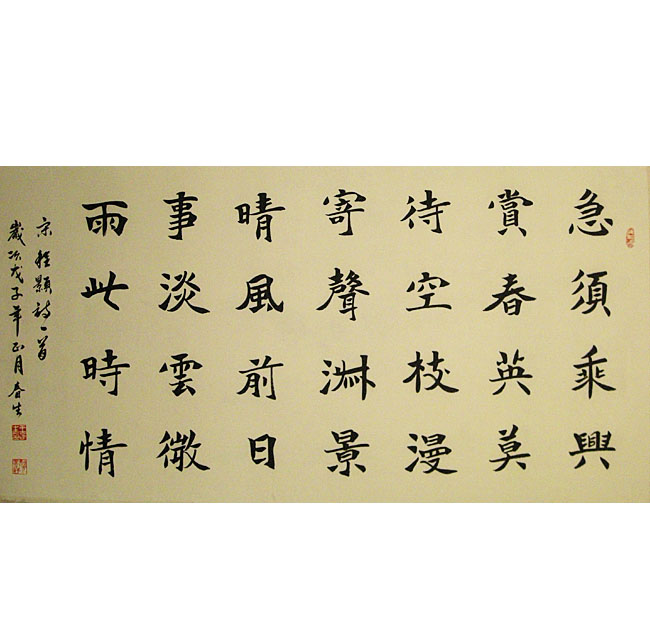 急須乘興
賞春英莫
待空枝漫
寄聲淑景
晴風前日
事淡雲微
雨此時情
宋程顥詩一首
歲次戊子年正月春生